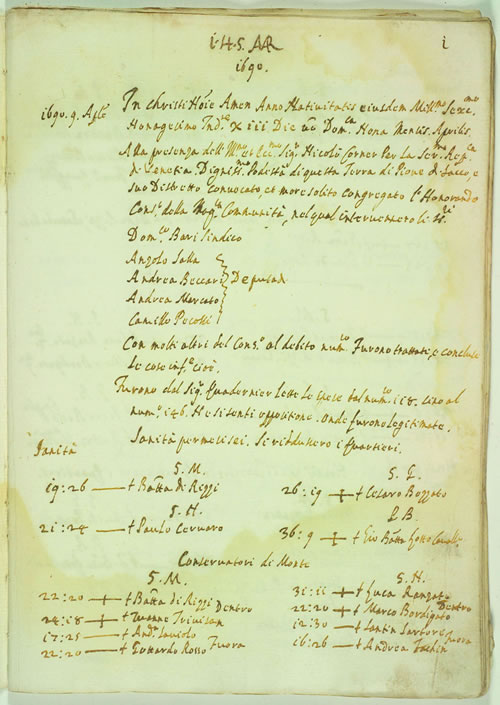 145. AR
i
1690.
1690. 9. Aple
In christi Noie Amen Anno Nativitatis eiusdem Mill.mo Sexc.mo
Nonagesimo Ind.e X iii Die vo Dom.ca Nona Mensis Aprilis
Alla presenza dell' Ill.mo et Ecc.mo Sig.r Nicolò Corner Per La Ser.ma Rep.ca
di Venetia Digniss.mo Podestà di questa Terra di Piove di Sacco, e
suo Distretto Convocato, et more solito congregato l'Honorando
Cons.o della Mag.ca Communità, nel qual intervennero li
Dom.co Bari Sindico
Angolo Salla
Andrea Beccari Deputadi
Andrea Mercato
Camillo Pecotti
Con molti altri del Cons.o al debito num.o Furono trattate, e concluse
le cose inf.e cioè.
Furono dal Sig.r Quadernier lette le spese dal num.o 118. sino al
num.o 146. Ne si sentì oppositione. onde furono legitimate.
Sanità per mesi sei. Si ridussero i quartieri.
Sanità
S. M. S. G.
19:26 + Batta di Rizzi 26:19 + Cesaro Bozzato
S. N. G B.
21:28 + Paulo Cervaro 36:9 + Gio Batta
Conservatori di Monte
S. M. S. N.
22:20 + Batta di Rizzi Dentro 31:11 + Luca
24:18 + Trivisan 22:20 + Marco Bordigato Dentro
17:25 + And.a 12:30 + Santin Sartore Fuora
22:20 + Rosso Fuora 16:26 + Andrea